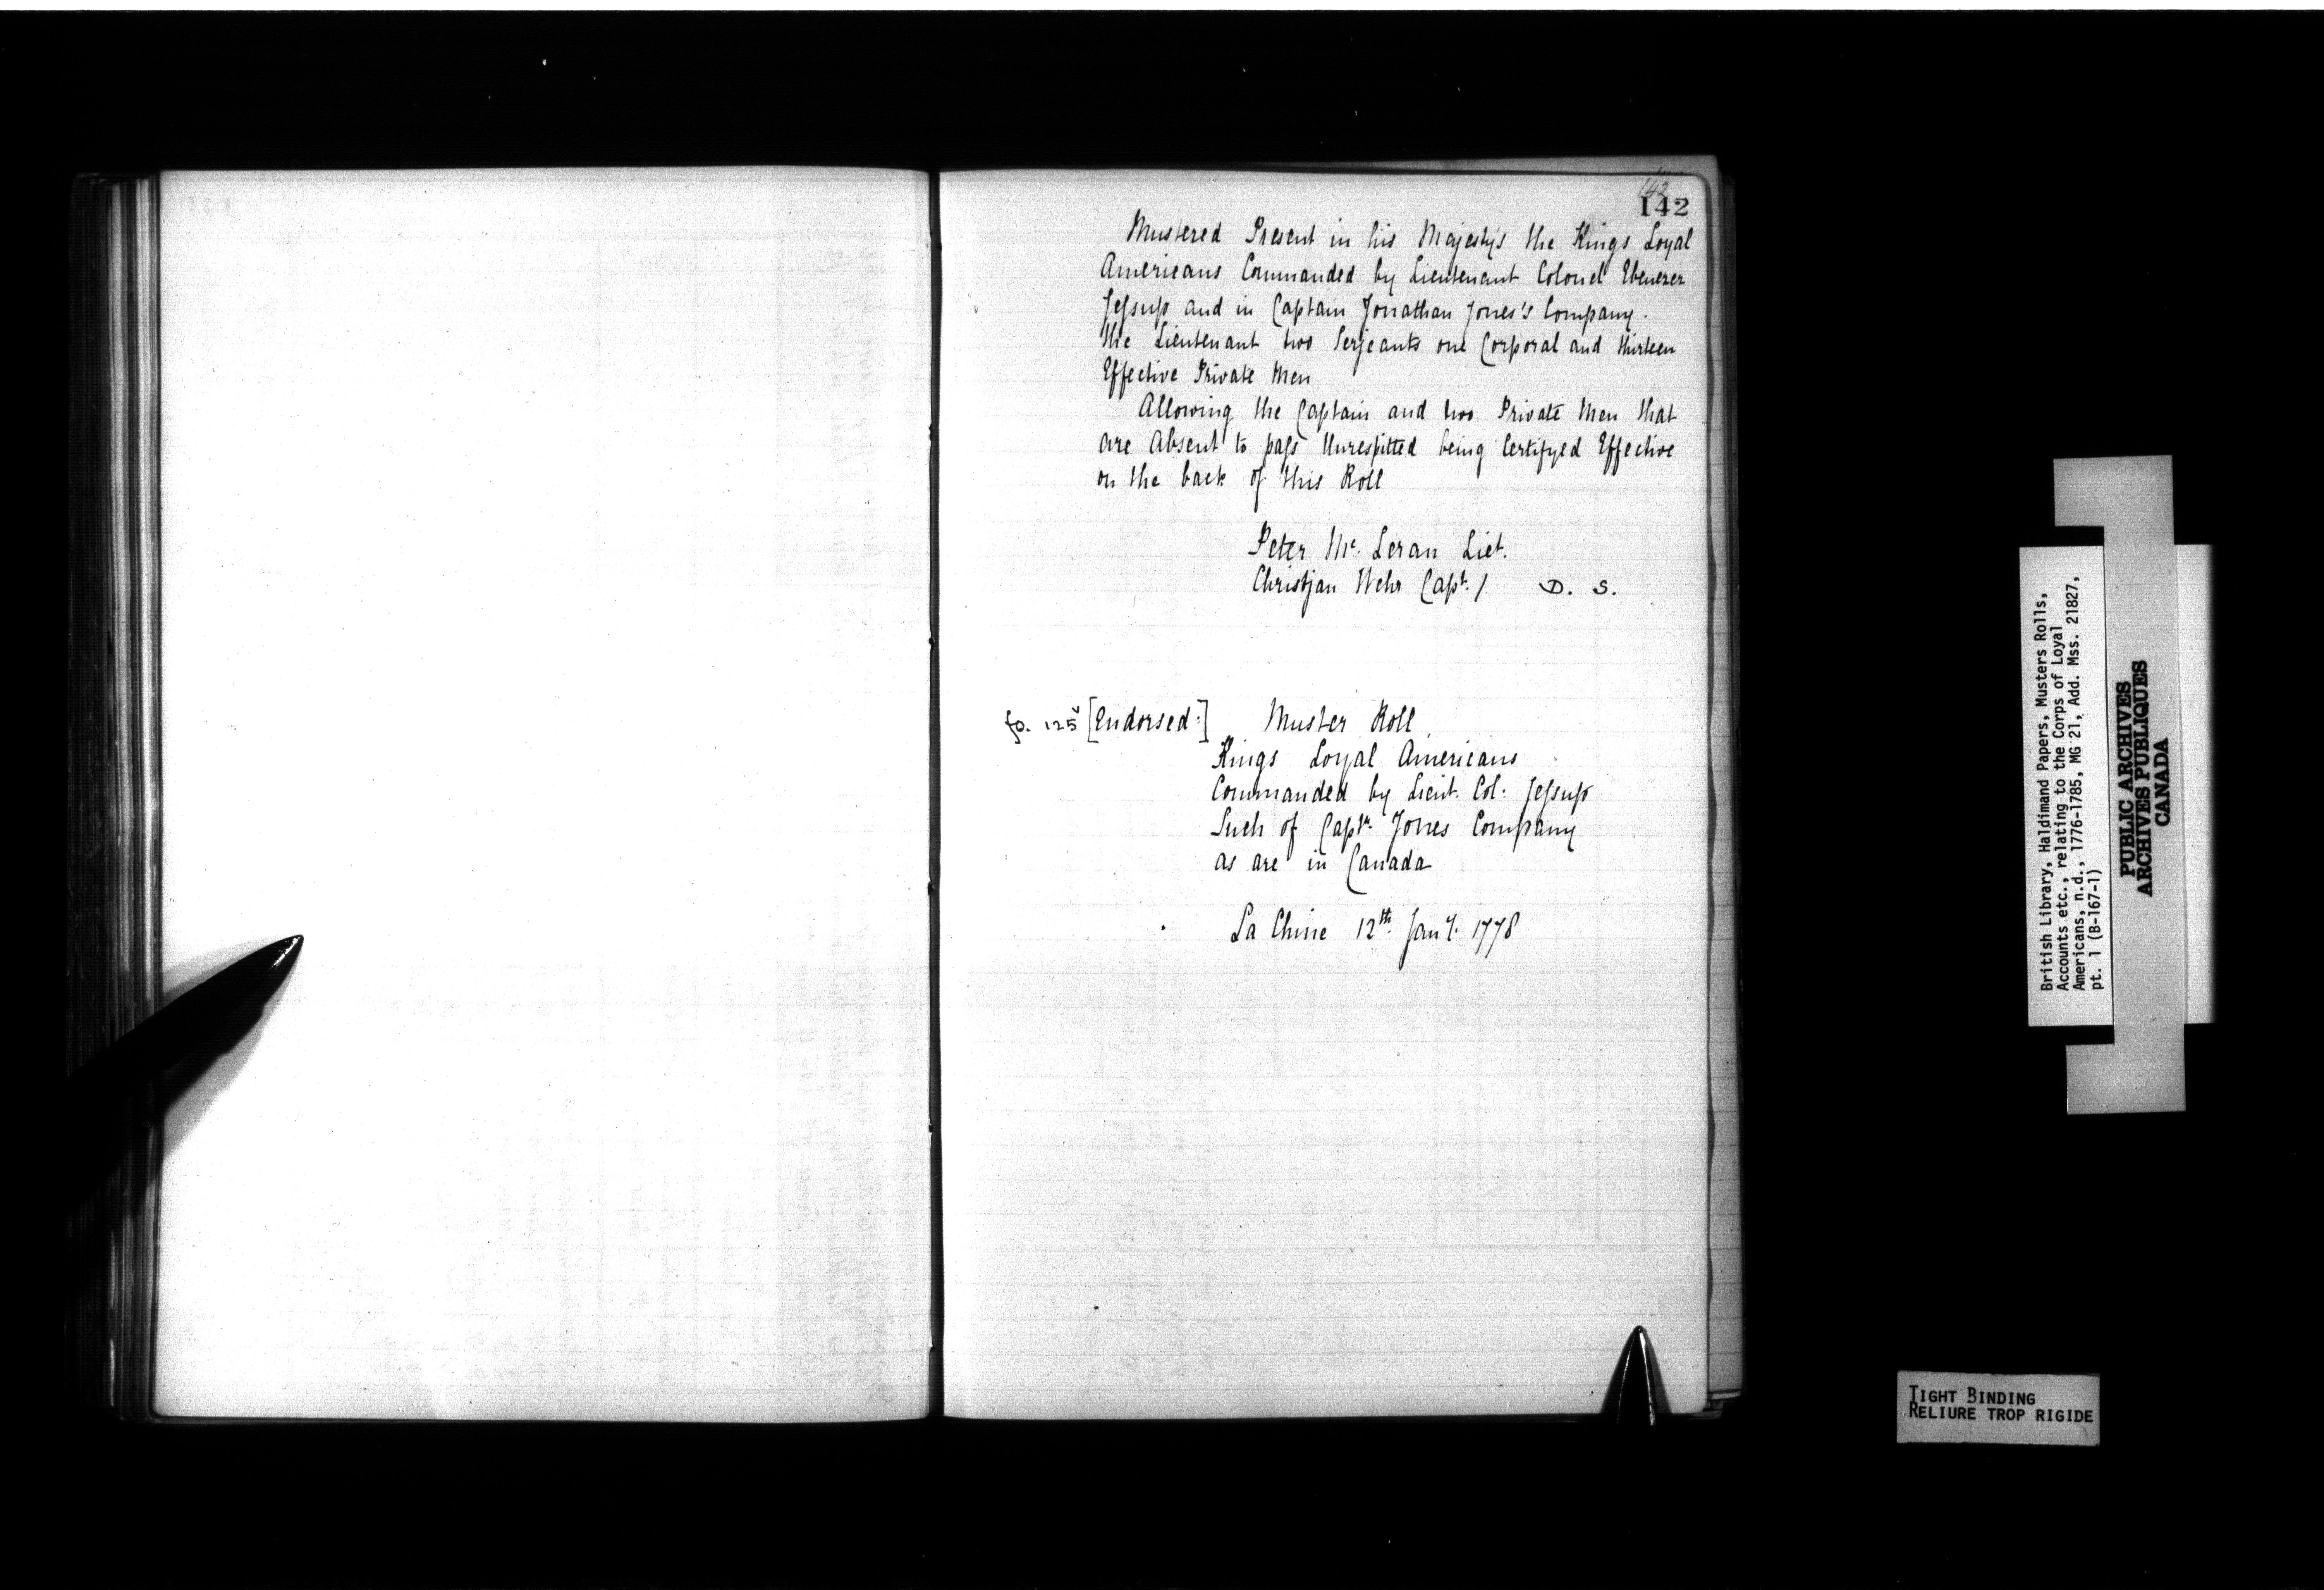 142
142
Mustered Present in his Majesty's the Kings Loyal
Americans Commanded by Lieutenant Colonel Ebenezer
Jeſsup and in Captain Jonathan Jones's Company.
the Lieutenant two Serjeants one Corporal and thirteen
Effective Private Men
Allowing the Captain and two Private Men that
are Absent to paſs Unrespitted being Certifyed Effective
on the back of this Roll
Peter Mc. Leran Liet.
Christjan Wehr Capt. / D. S.
fo. 125v [Endorsed:] Muster Roll
Kings Loyal Americans
Commanded by Lieut. Col: Jeſsup
Such of Captn. Jones Company
as are in Canada
La Chine 12th. Jany. 1778
British Library, Haldimand Papers, Musters Rolls,
Accounts etc., relating to the Corps of Loyal
Americans, n.d., 1776-1785, MG 21, Add. Mss. 21827,
pt. 1 (B-167-1)
PUBLIC ARCHIVES
ARCHIVES PUBLIQUES
CANADA
TIGHT BINDING
RELIURE TROP RIGIDE